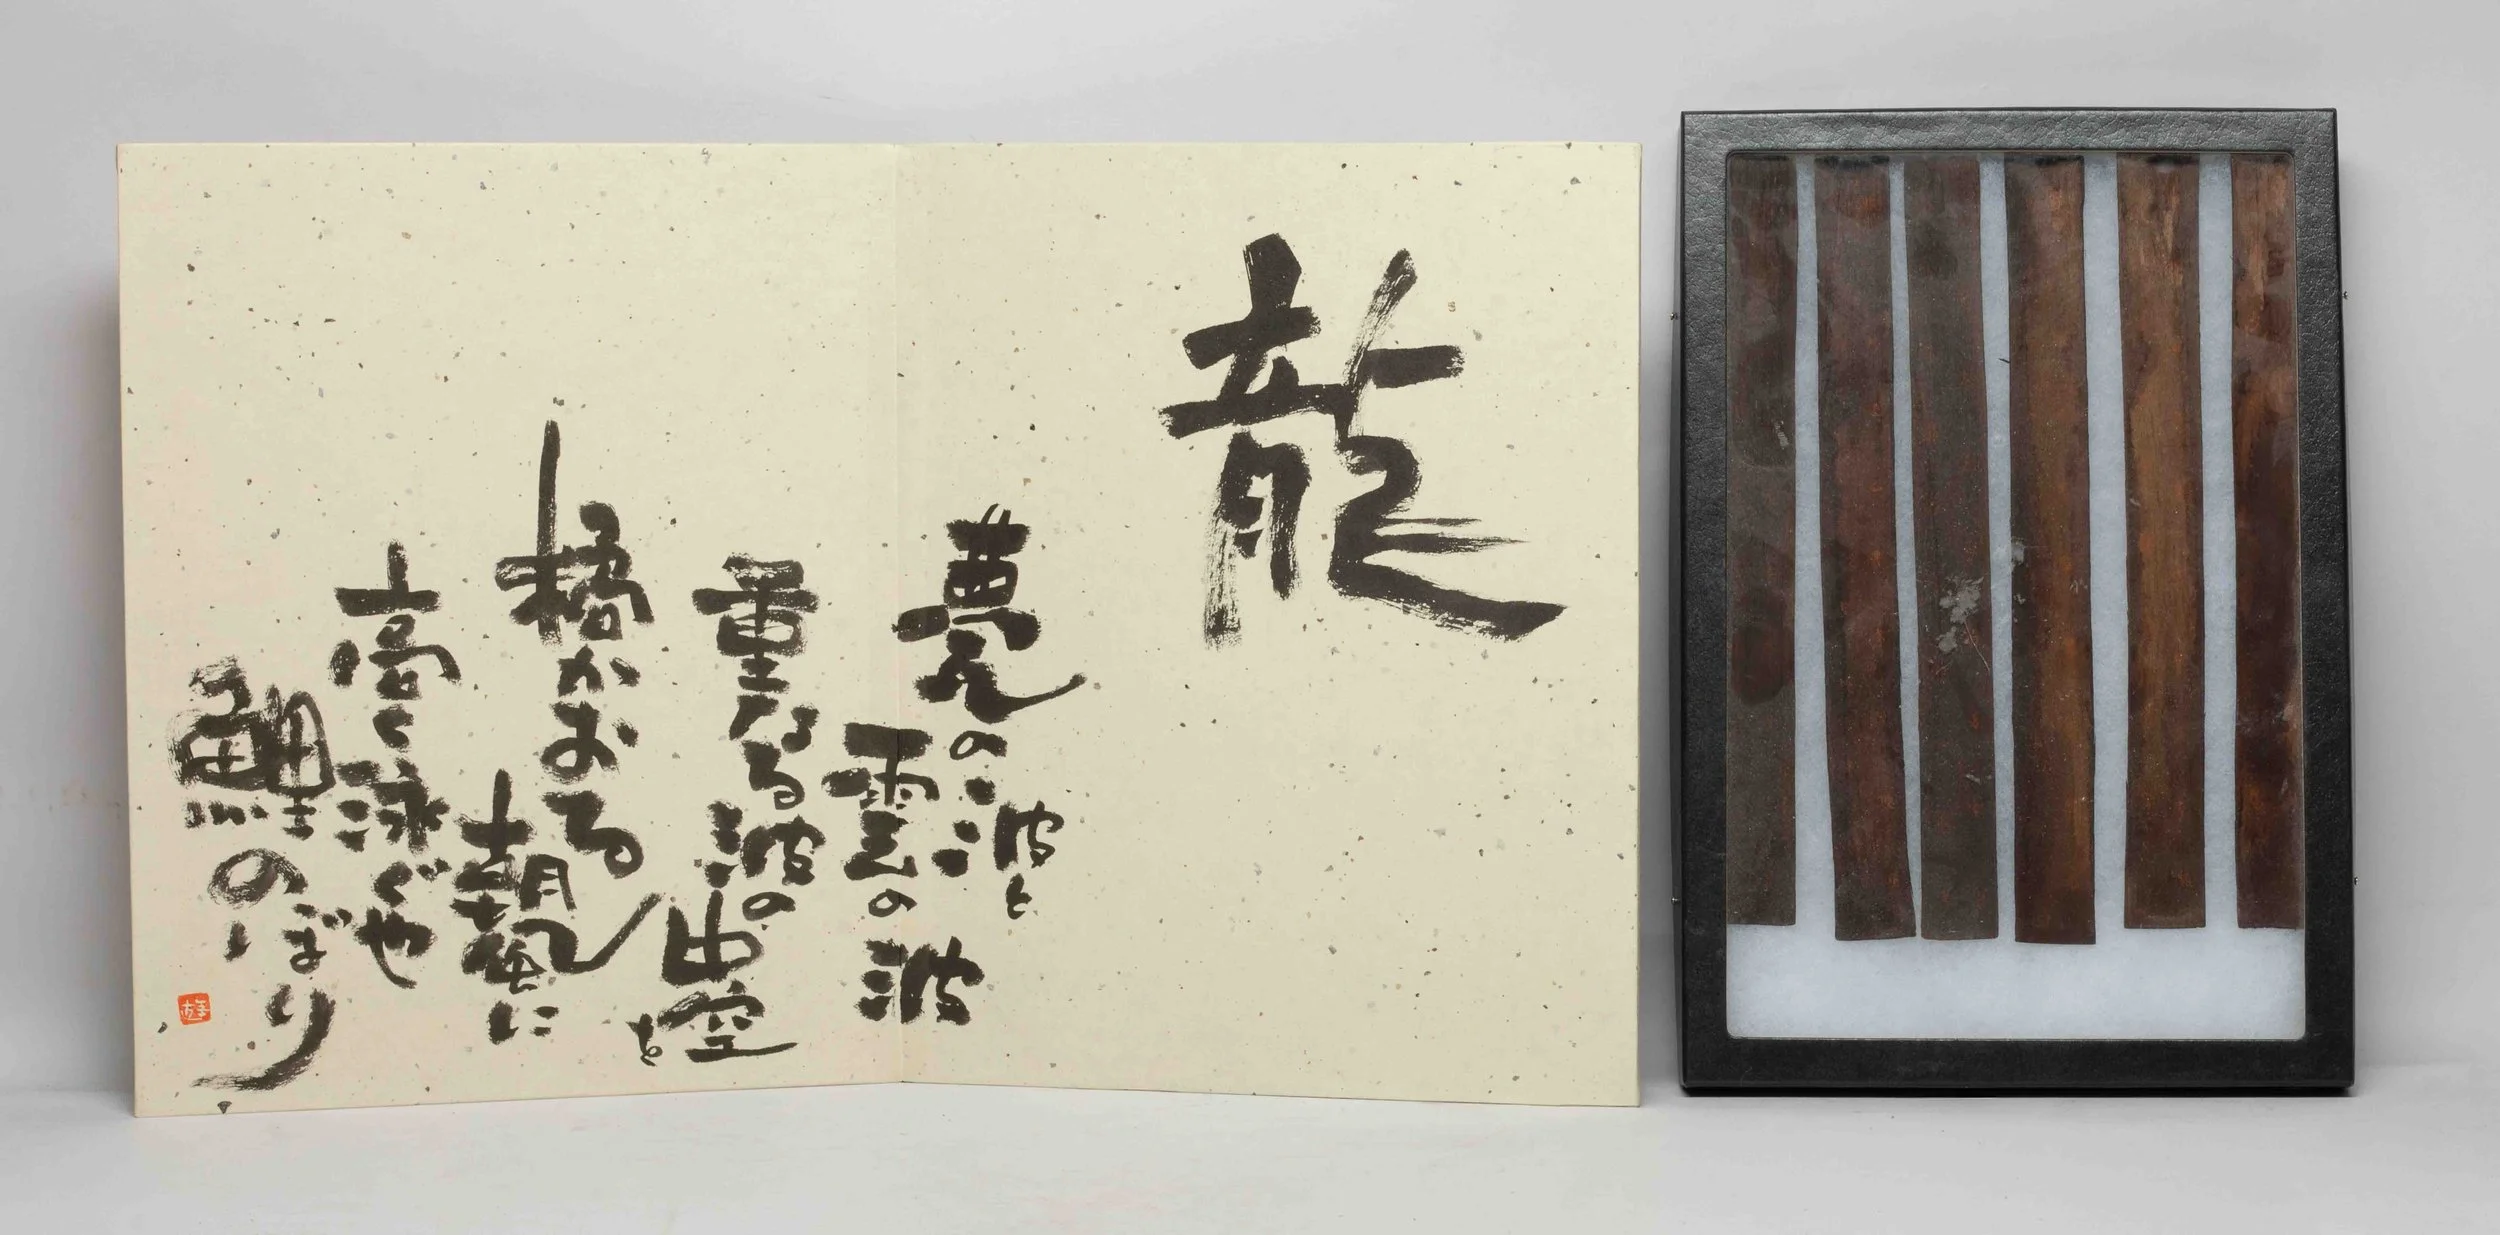 龍
甍の波と
雲の波
重なる波の中空を
橘かおる
朝風に
高く泳ぐや
鯉のぼり